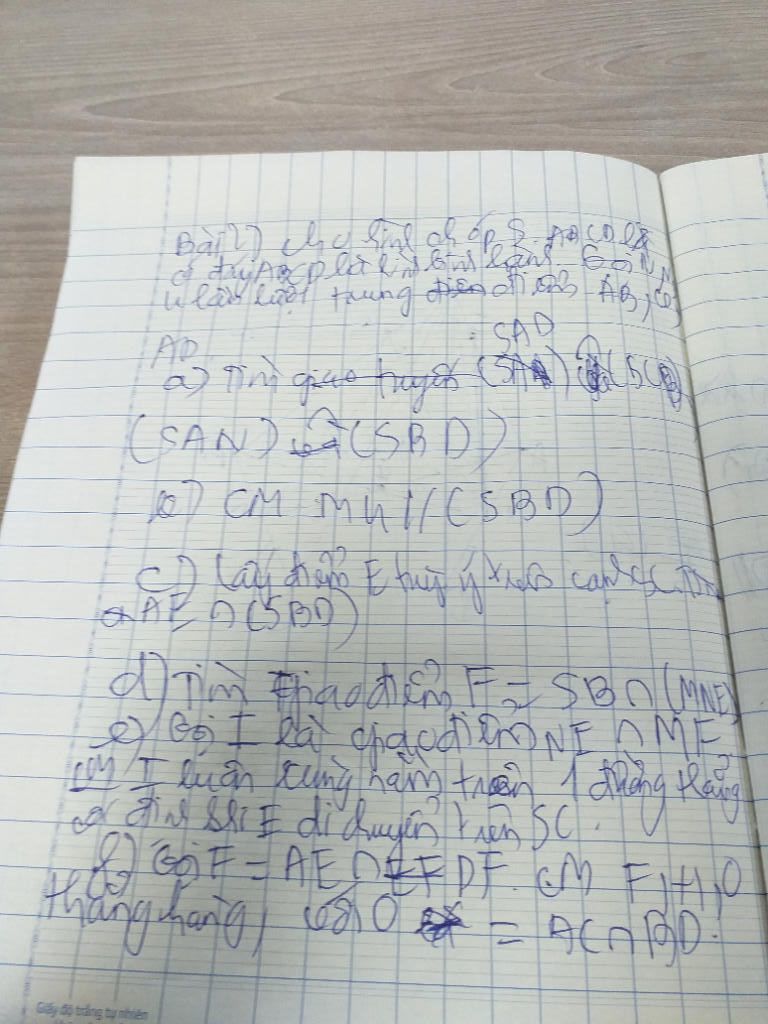 Bài 2) cho hình chóp S.ABCD
có đáy ABCD là hình bình hành. Gọi
lần lượt trung điểm AB,
AD SAD
a) Tìm giao tuyến
(SAN) và (SBD)
b) CM MN // (SBD)
c) Lấy điểm E tuỳ ý trên cạnh SC. Tìm
AE ∩ (SBD)
d) Tìm giao điểm F = SB ∩ (MNE)
e) Gọi I là giao điểm NE ∩ MF
CM I luôn nằm trên 1 đường thẳng
cố định khi E di chuyển trên SC.
f) Gọi F = AE ∩ DF. CM F, H, O
thẳng hàng, với O = AC ∩ BD.
Giấy độ trắng tự nhiên